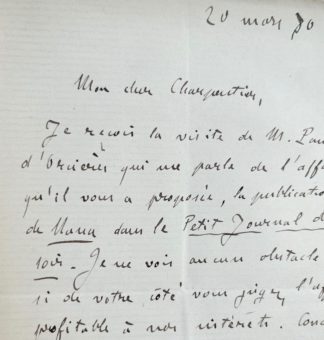 20 mars 80
Mon cher Charpentier,
Je reçois la visite de M. Paul
d'Orcières qui me parle de l'affa
qu'il vous a proposée, la publication
de Nana dans le Petit Journal d
soir. Je ne vois aucun obstacle
si de votre côté vous jugez l'af
profitable à nos intérêts. Conc